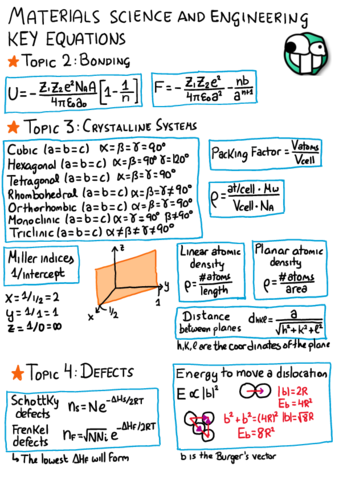 MATERIALS SCIENCE AND ENGINEERING
KEY EQUATIONS
★ TOPIC 2: BONDING
U = -Z₁Z₂e²N₀A/4πε₀a₀ [1 - 1/n]
F = -Z₁Z₂e²/4πε₀a² - nb/aⁿ⁺¹
★ TOPIC 3: CRYSTALLINE SYSTEMS
Cubic (a=b=c) α=β=γ=90°
Hexagonal (a=b=c) α=β=90° γ=120°
Tetragonal (a=b=c) α=β=γ=90°
Rhombohedral (a=b=c) α=β=γ≠90°
Orthorhombic (a=b=c) α=β=γ=90°
Monoclinic (a=b=c) α=γ=90° β≠90°
Triclinic (a=b=c) α≠β≠γ≠90°
Packing Factor = Vatoms/Vcell
ρ = at/cell · Mw/Vcell · NA
Miller indices
1/intercept
x = 1/1/2 = 2
y = 1/1 = 1
z = 1/0 = ∞
z
y
x
1/2
1
Linear atomic density
ρ = #atoms/length
Planar atomic density
ρ = #atoms/area
Distance between planes dhkl = a/√h²+k²+l²
h,k,l are the coordinates of the plane
★ TOPIC 4: DEFECTS
Schottky defects ns = Ne^-ΔHs/2RT
Frenkel defects nF = √NNi e^-ΔHF/2RT
↳ The lowest ΔHf will form
Energy to move a dislocation
E ∝ |b|²
|b| = 2R
Eb = 4R²
b² + b² = (4R)² |b| = √8R
Eb = 8R²
b is the Burger's vector